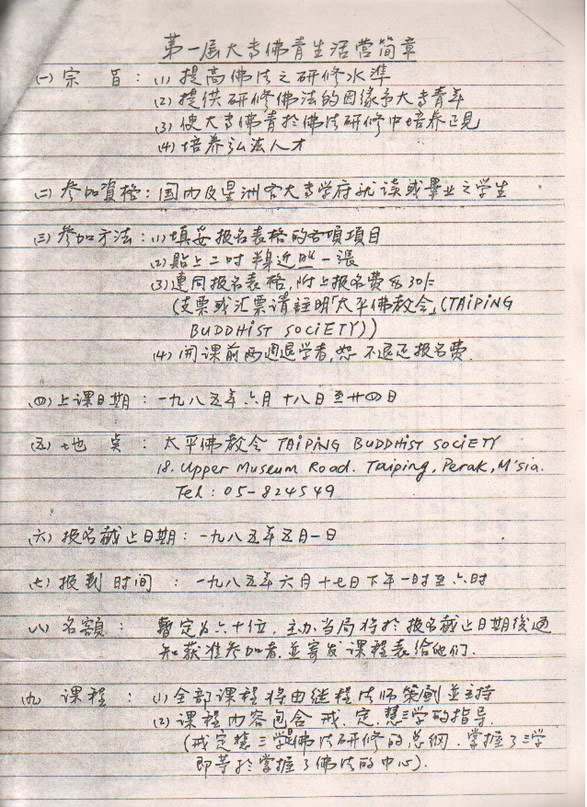 第一届大专佛青生活营简章
(一) 宗 旨 : (1) 提高佛法之研修水準
(2) 提供研修佛法的因缘予大专青年
(3) 使大专佛青於佛法研修中培养正見
(4) 培养弘法人才
(二) 参加資格 : 国内及星洲各大专学府就读或畢业之学生
(三) 参加方法 : (1) 填妥报名表格的各項項目
(2) 貼上二吋半身近照一張
(3) 連同报名表格,附上报名费 $ 30/=
(支票或汇票请註明「太平佛教会」(TAIPING
BUDDHIST SOCIETY))
(4) 開课前两週退学者,恕不退还报名费.
(四) 上课日期 : 一九八五年六月十八日至廿四日
(五) 地 点 : 太平佛教会 TAIPING BUDDHIST SOCIETY
18. Upper Museum Road. Taiping, Perak, M'sia.
Tel : 05-824549
(六) 报名截止日期 : 一九八五年五月一日
(七) 报到时间 : 一九八五年六月十七日下午一时至六时
(八) 名額 : 暫定为六十位. 主办当局将於报名截止日期後通
知获准参加者,並寄发课程表给他们.
(九) 课程 : (1) 全部课程将由继程法师策劃並主持
(2) 课程内容包含戒、定、慧三学的指导.
(戒定慧三学是佛法研修的总纲. 掌握了三学
即等於掌握了佛法的中心).